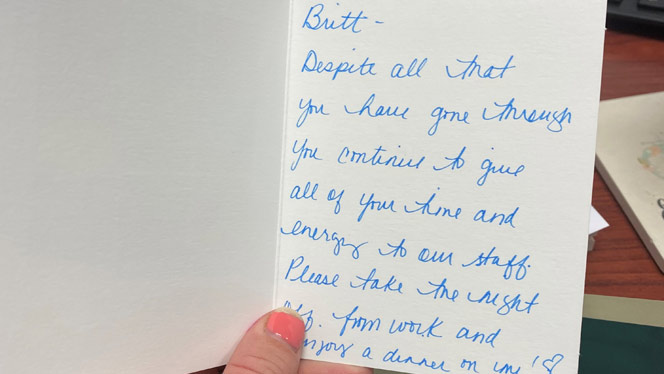 Britt -
Despite all that
you have gone through
you continue to give
all of your time and
energy to our staff.
Please take the night
off. from work and
enjoy a dinner on me! ♡